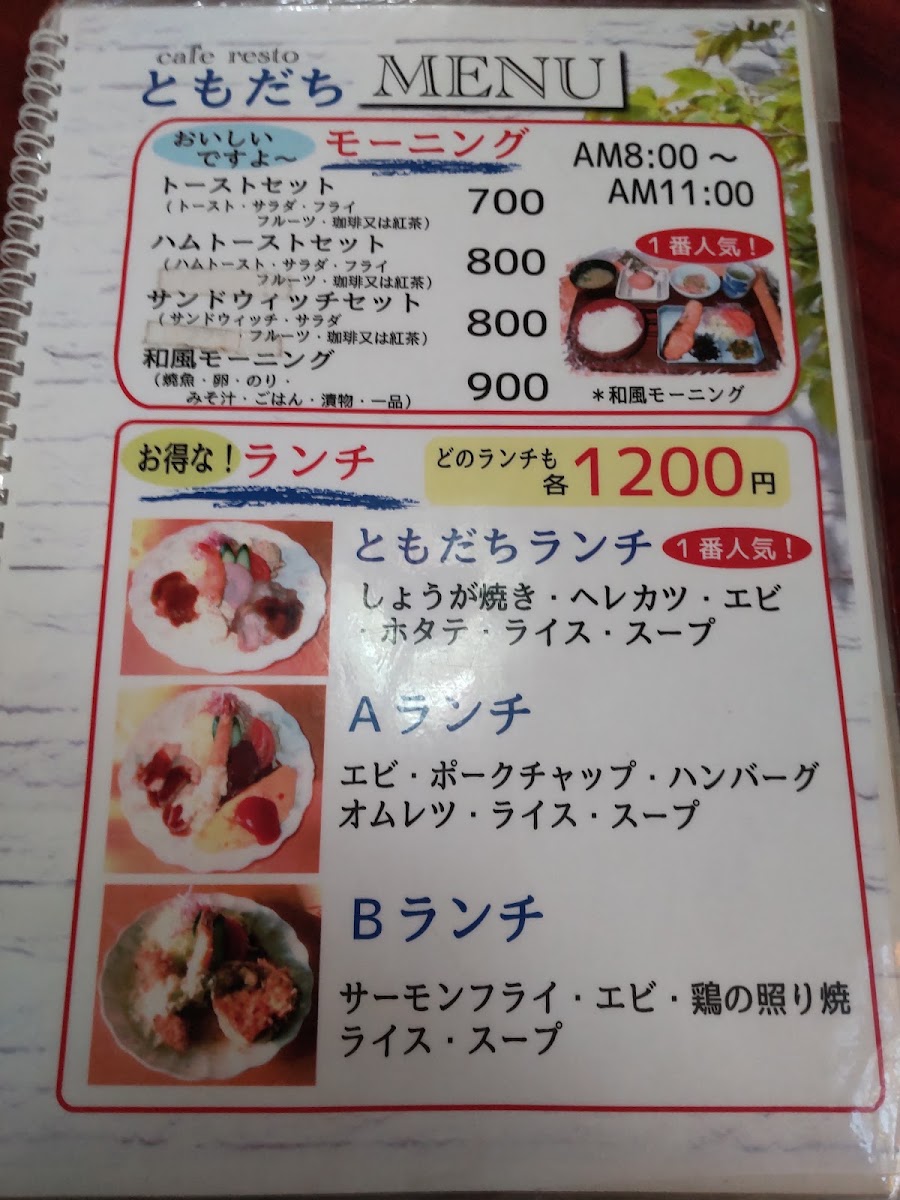 cafe resto
ともだち MENU
おいしい
ですよ～
モーニング
AM8:00～
AM11:00
トーストセット 700
（トースト・サラダ・フライ
フルーツ・珈琲又は紅茶）
ハムトーストセット 800
（ハムトースト・サラダ・フライ
フルーツ・珈琲又は紅茶）
サンドウィッチセット 800
（サンドウィッチ・サラダ
フルーツ・珈琲又は紅茶）
和風モーニング 900
（焼魚・卵・のり・
みそ汁・ごはん・漬物・一品）
1番人気！
＊和風モーニング
お得な！ランチ
どのランチも
各1200円
ともだちランチ 1番人気！
しょうが焼き・ヘレカツ・エビ
・ホタテ・ライス・スープ
Aランチ
エビ・ポークチャップ・ハンバーグ
オムレツ・ライス・スープ
Bランチ
サーモンフライ・エビ・鶏の照り焼
ライス・スープ